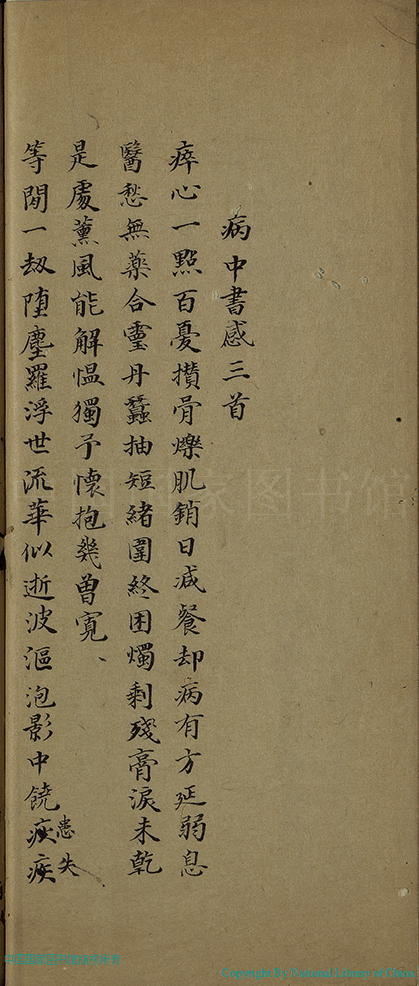 病中書感三首
瘁心一點百憂攢骨爍肌銷日减餐却病有方延弱息
醫愁無藥合靈丹蠶抽短緒圍終困燭剩殘膏淚未乾
是處薰風能解愠獨予懷抱幾曾寬、
等閒一刼墮塵羅浮世流華似逝波漚泡影中饒疾疾
患失
Copyright By National Library of China